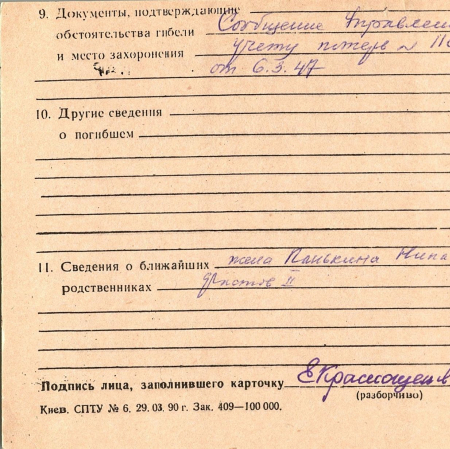 9. Документы, подтверждающие Сообщение Управлен
обстоятельства гибели учету потерь №
и место захоронения от 6.3.47
10. Другие сведения
о погибшем
11. Сведения о ближайших жена Панькина Нина
родственниках
Подпись лица, заполнившего карточку ЕКраснощеков
(разборчиво)
Киев. СПТУ № 6. 29. 03. 90 г. Зак. 409—100 000.